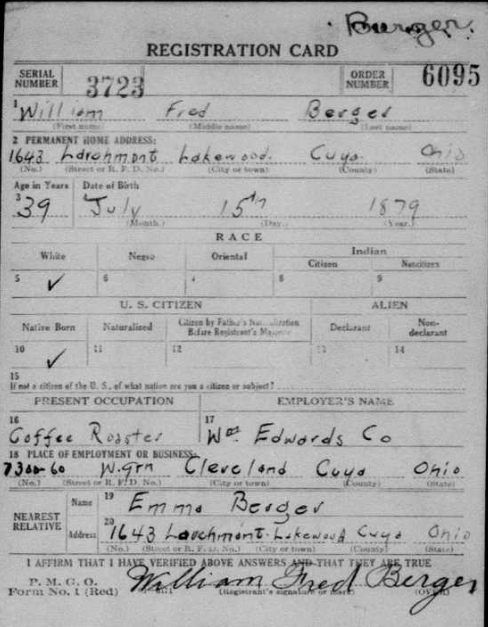 Burger.
REGISTRATION CARD
SERIAL NUMBER 3723 ORDER NUMBER 6095
1 William Fred Berger
(First name) (Middle name) (Last name)
2 PERMANENT HOME ADDRESS:
1643 Larchmont Lakewood. Cuya. Ohio
(No.) (Street or R. F. D. No.) (City or town) (County) (State)
Age in Years Date of Birth
3 39 4 July 15th 1879
(Month.) (Day.) (Year.)
RACE
White Negro Oriental Indian
Citizen Noncitizen
5 ✓ 6 7 8 9
U. S. CITIZEN ALIEN
Native Born Naturalized Citizen by Father's Naturalization Before Registrant's Majority Declarant Non-declarant
10 ✓ 11 12 13 14
15
If not a citizen of the U. S., of what nation are you a citizen or subject?
PRESENT OCCUPATION EMPLOYER'S NAME
16 17
Coffee Roaster Wm Edwards Co
18 PLACE OF EMPLOYMENT OR BUSINESS:
W. Cleveland Cuya Ohio
(No.) (Street or R. F. D. No.) (City or town) (County) (State)
NEAREST RELATIVE Name 19 Emma Berger
Address 20 1643 Larchmont. Lakewood Cuya Ohio
(No.) (Street or R. F. D. No.) (City or town) (County) (State)
I AFFIRM THAT I HAVE VERIFIED ABOVE ANSWERS AND THAT THEY ARE TRUE
P. M. G. O.
Form No. 1 (Red) William Fred Berger
(Registrant's signature or mark) (OVER)